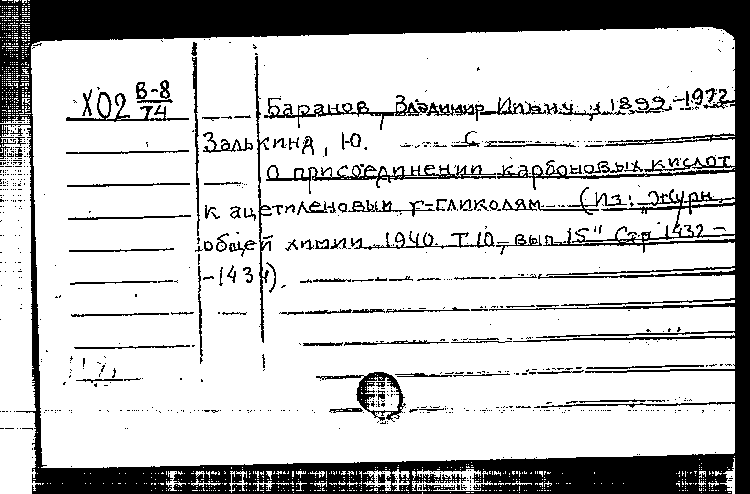 Х02 В-8/74
Баранов, Владимир Ильич, 1899-1972
Залькинд, Ю. С
О присоединении карбоновых кислот
к ацетиленовым γ-гликолям (Из: "Журн.
общей химии 1940. Т 10, вып 15" Стр 1432-
-1434).